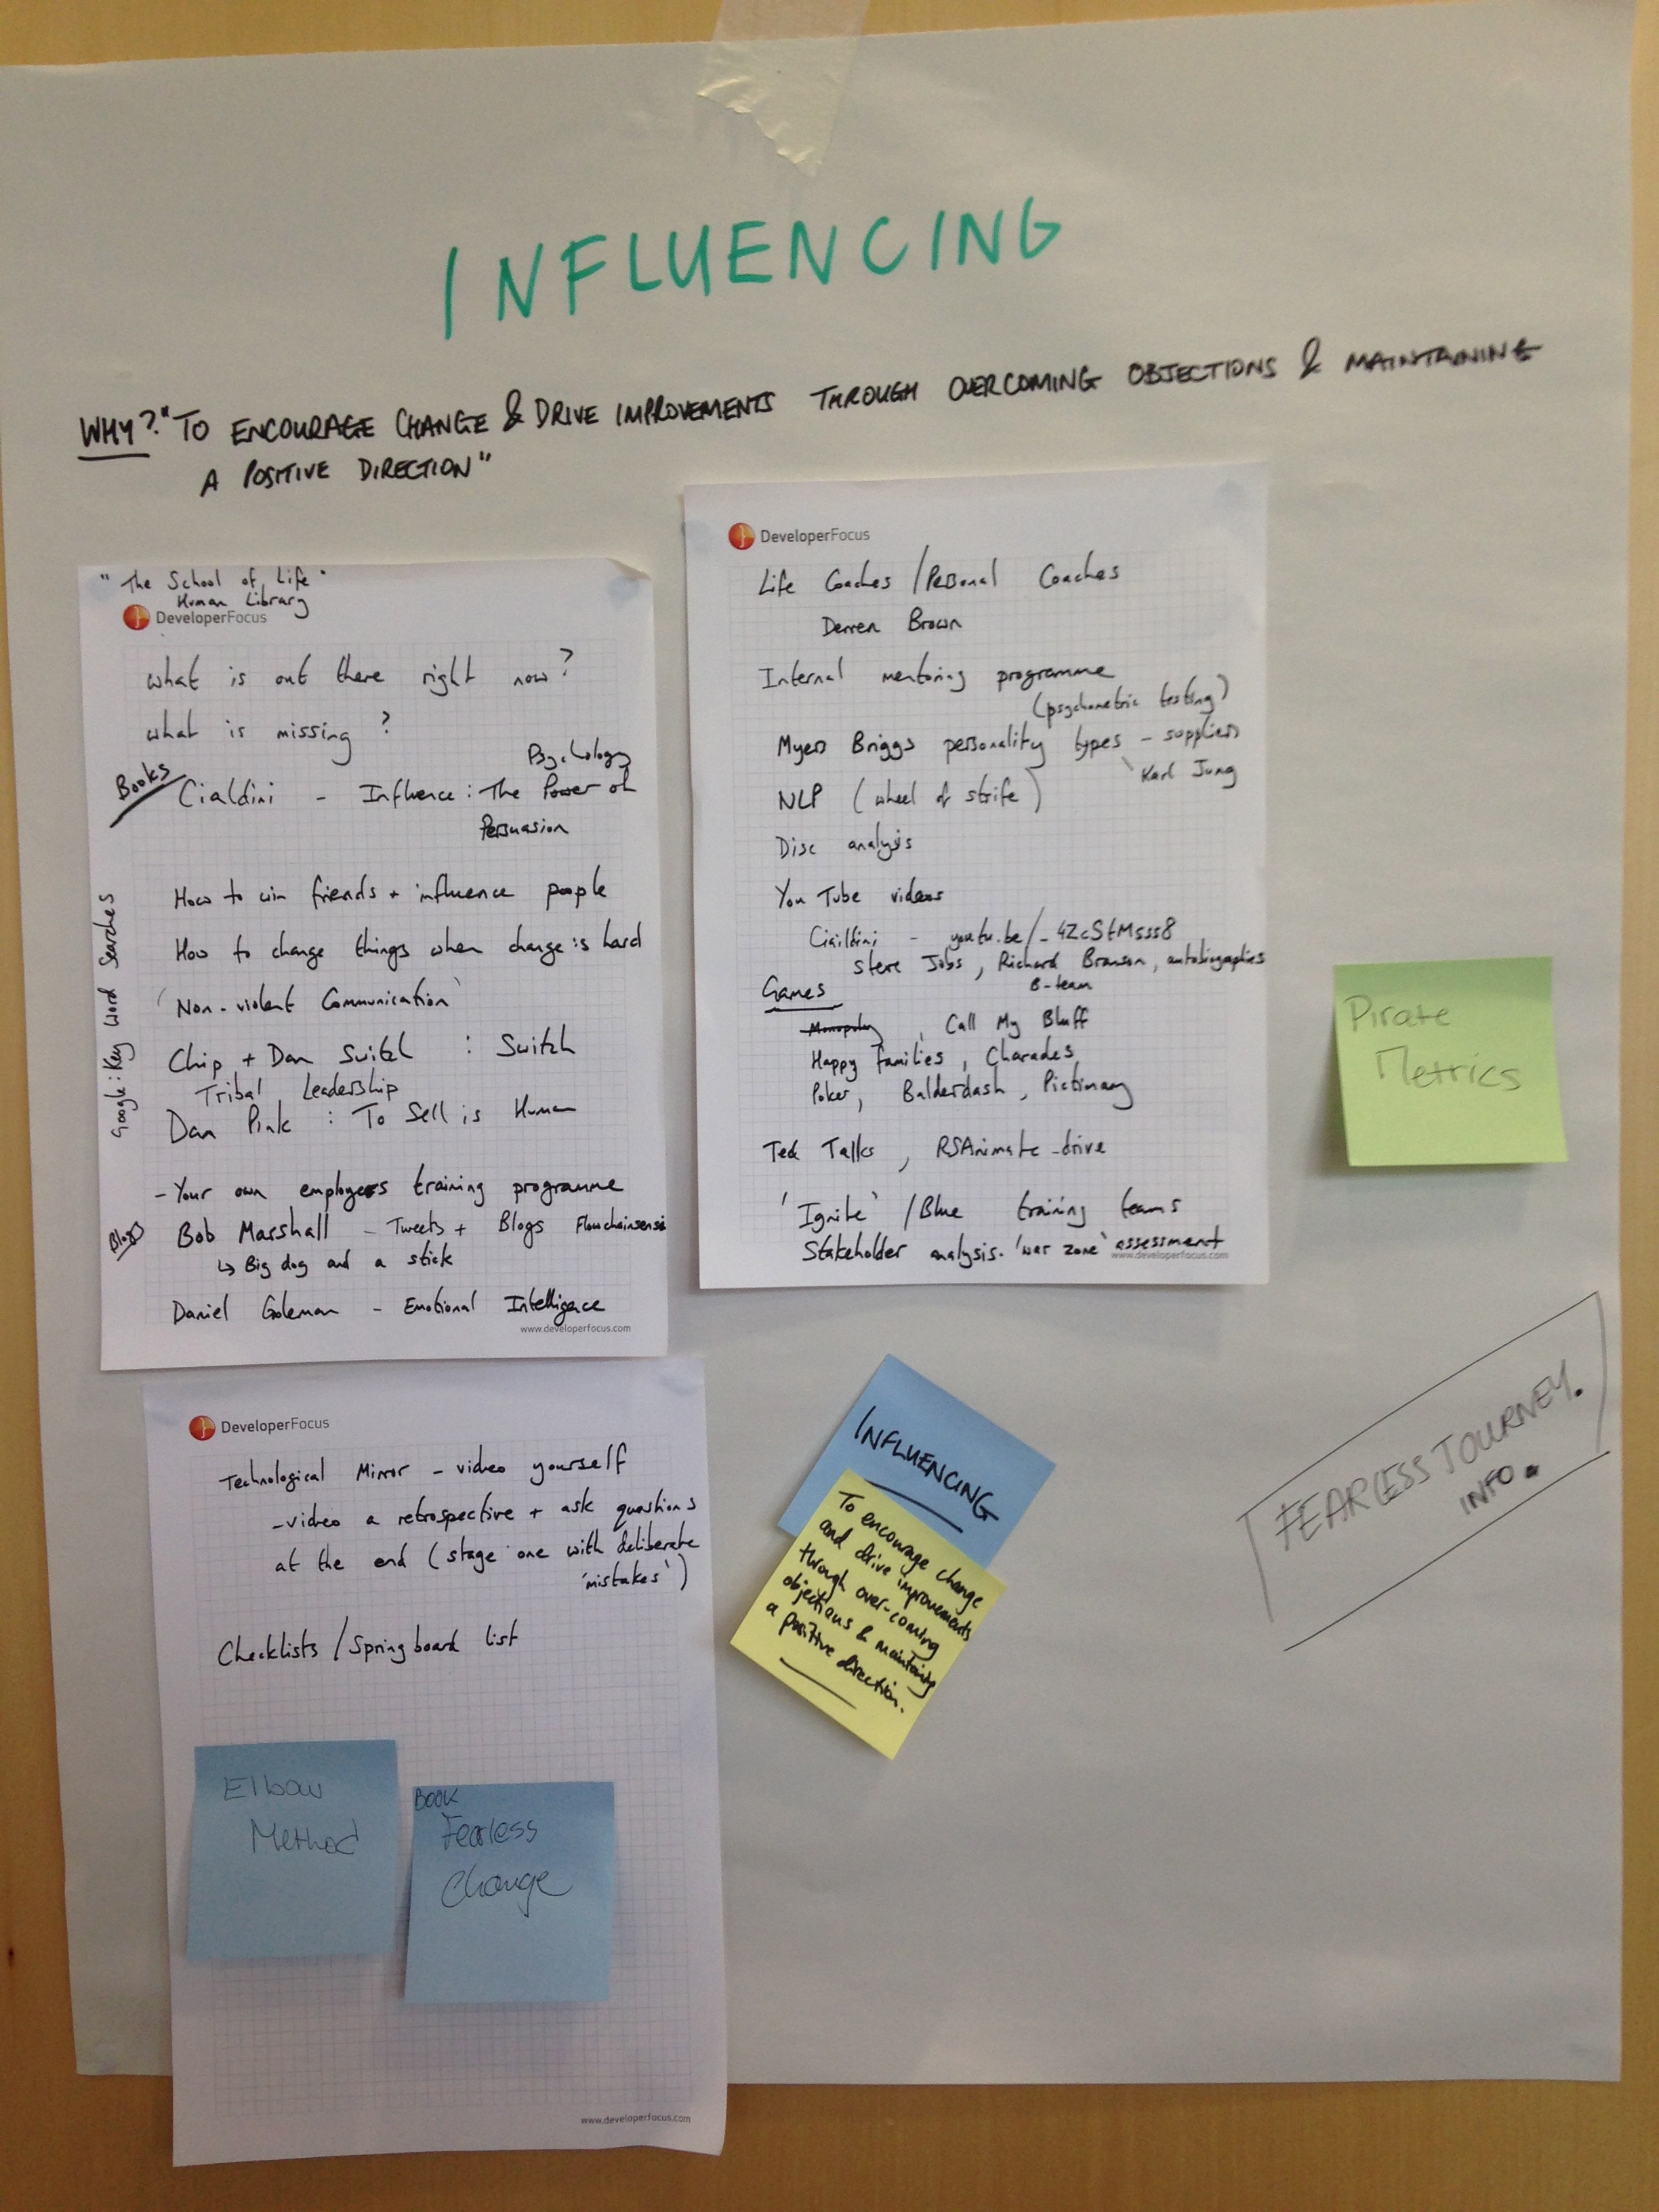 INFLUENCING
WHY? "TO ENCOURAGE CHANGE & DRIVE IMPROVEMENTS THROUGH OVERCOMING OBJECTIONS & MAINTAINING
A POSITIVE DIRECTION"
"The School of Life"
Human Library
DeveloperFocus
what is out there right now?
what is missing?
Books
Psychology
Cialdini - Influence: The Power of
Persuasion
How to win friends + influence people
How to change things when change is hard
'Non-violent Communication'
Chip + Dan Switch : Switch
Tribal Leadership
Dan Pink : To Sell is Human
Google: Key Word Searches
- Your own employees training programme
Blogs
Bob Marshall - Tweets + Blogs Flowchainsensei
↳ Big dog and a stick
Daniel Goleman - Emotional Intelligence
www.developerfocus.com
DeveloperFocus
Life Coaches / Personal Coaches
Derren Brown
Internal mentoring programme
(psychometric testing)
Myers Briggs personality types - suppliers
Karl Jung
NLP (wheel of strife)
Disc analysis
You Tube videos
Cialdini - youtu.be/_4ZcStMsss8
Steve Jobs, Richard Branson, autobiographies
B-team
Games
Monopoly, Call My Bluff
Happy Families, Charades,
Poker, Balderdash, Pictionary
Ted Talks, RSAnimate - drive
'Ignite' / Blue training teams
Stakeholder analysis. 'war zone' assessment
www.developerfocus.com
Pirate
Metrics
DeveloperFocus
Technological Mirror - video yourself
- video a retrospective + ask questions
at the end (stage one with deliberate
'mistakes')
Checklists / Springboard list
Elbow
Method
BOOK
Fearless
Change
www.developerfocus.com
INFLUENCING
To encourage change
and drive improvements
through over-coming
objections & maintaining
a positive direction.
FEARLESS JOURNEY.
INFO.